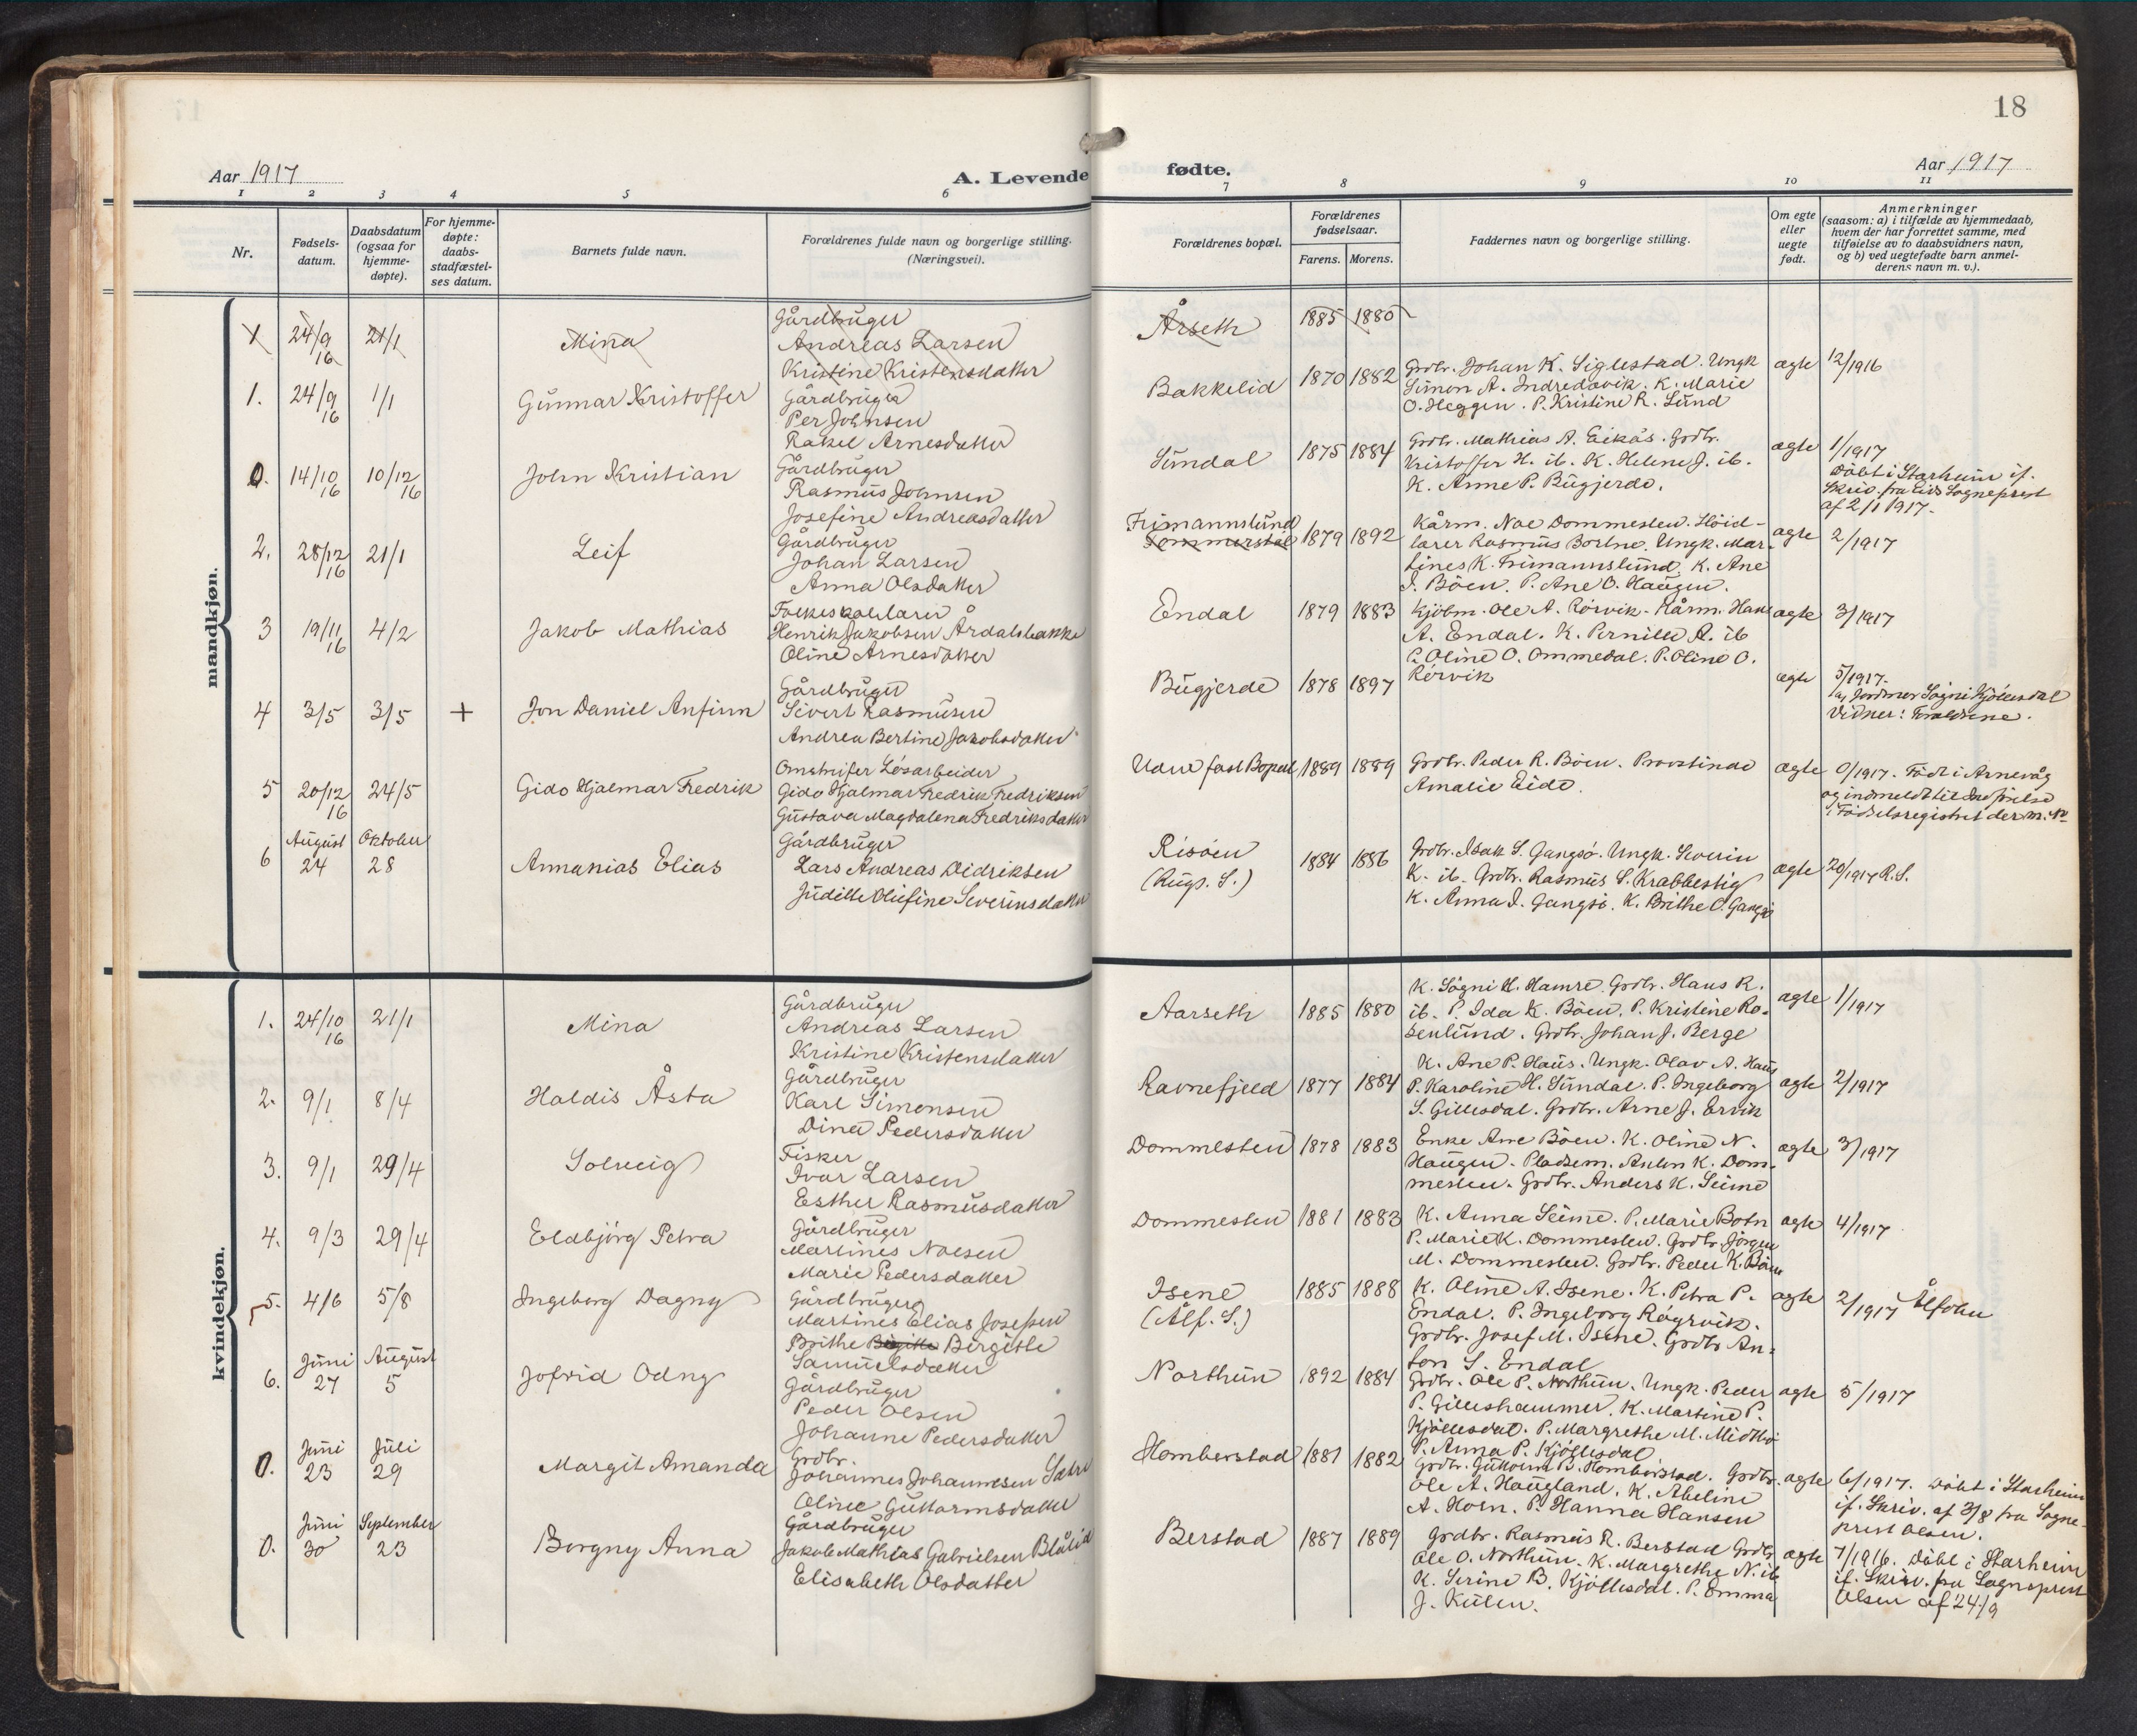 18
Aar 1917
A. Levende
fødte.
Aar 1917
1 2 3 4 5 6 7 8 9 10 11
Nr.
Fødsels-
datum.
Daabsdatum
(ogsaa for
hjemme-
døpte).
For hjemme-
døpte:
daabs-
stadfæstel-
ses datum.
Barnets fulde navn.
Forældrenes fulde navn og borgerlige stilling.
(Næringsvei).
Forældrenes bopæl.
Forældrenes
fødselsaar.
Farens. Morens.
Faddernes navn og borgerlige stilling.
Om egte
eller
uegte
født.
Anmerkninger
(saasom: a) i tilfælde av hjemmedaab,
hvem der har forrettet samme, med
tilføielse av to daabsvidners navn,
og b) ved uegtefødte barn anmel-
derens navn m. v.).
mandkjøn.
1 24/9 16 21/1 Mina
Gårdbruger
Andreas Larsen
Kristine Kristensdatter
Årseth 1885 1880
1. 24/9 16 1/1 Gunnar Kristoffer
Gårdbruger
Per Johnsen
Rakel Arnesdatter
Bakkelid 1870 1882
Grdbr. Johan K. Siglestad. Ungk
Simon A. Indredavik. K. Marie
O. Heggen. P. Kristine R. Lund
ægte 12/1916
0. 14/10 16 10/12 16 John Kristian
Gårdbruger
Rasmus Johnsen
Josefine Andreasdatter
Sundal 1875 1884
Grdbr. Mathias A. Eikås. Grdbr.
Kristoffer H. ib. K. Helene J. ib.
K. Anne P. Bugjerde.
ægte 1/1917
Döbt i Starheim if.
Skriv. fra Eids Sogneprest
af 2/1 1917.
2. 28/12 16 21/1 Leif
Gårdbruger
Johan Larsen
Anna Olsdatter
Frimannslund
1879 1892
Kårm. Noe Dommesten. Höid-
larer Rasmus Bortne. Ungk. Mar-
tines K. Frimannslund. K. Ane
I. Böen. P. Ane O. Haugen.
ægte 2/1917
3 19/11 16 4/2 Jakob Mathias
Folkeskolelærer
Henrik Jakobsen Årdalsbakke
Oline Arnesdatter
Endal 1879 1883
Kjöbm. Ole A. Rörvik. Kårm. Hans
A. Endal. K. Pernille A. ib
P. Oline O. Ommedal. P. Oline O.
Rörvik
ægte 3/1917
4 3/5 3/5 + Jon Daniel Anfinn
Gårdbruger
Sivert Rasmusen
Andrea Bertine Jakobsdatter
Bugjerde 1878 1897
ægte 5/1917.
af Jordmor Sögni Kjölesdal
Vidner: Forældrene.
5 20/12 16 24/5 Gido Hjalmar Fredrik
Omstreifer Lösarbeider
Gido Hjalmar Fredrik Fredriksen
Gustava Magdalena Fredriksdatter
Uden fast Bopæl 1889 1889
Grdbr. Peder R. Böen. Provstinde
Amalie Eide.
ægte 0/1917. Födt i Arnevåg
og indmeldt til Indförelse
i Födselsregistret der m. No
6 August 24 Oktober 28 Annanias Elias
Gårdbruger
Lars Andreas Didriksen
Judithe Olufine Severinsdatter
Risöen
(Rugs. S.)
1884 1886
Grdbr. Isak S. Gangsö. Ungk. Severin
K. ib. Grdbr. Rasmus S. Krabbestig
K. Anna I. Gangsö. K. Brithe O. Gangsö
ægte 20/1917 R.S.
kvindekjøn.
1. 24/10 16 21/1 Mina
Gårdbruger
Andreas Larsen
Kristine Kristensdatter
Aarseth 1885 1880
K. Sögni H. Hamre. Grdbr. Hans R.
ib. P. Ida K. Böen. P. Kristine Ro-
senlund. Grdbr. Johan J. Berge
ægte 1/1917
2. 9/1 8/4 Haldis Åsta
Gårdbruger
Karl Simonsen
Dina Pedersdatter
Ravnefjeld 1877 1884
K. Ane P. Haus. Ungk. Olav A. Haus
P. Karoline H. Sundal. P. Ingeborg
S. Gillesdal. Grdbr. Arne J. Ervik
ægte 2/1917
3. 9/1 29/4 Solveig
Fisker
Ivar Larsen
Esther Rasmusdatter
Dommesten 1878 1883
Enke Ane Böen. K. Oline N.
Haugen. Pladsem. Anten K. Dom-
mesten. Grdbr. Anders K. Seime
ægte 3/1917
4. 9/3 29/4 Eldbjörg Petra
Gårdbruger
Martines Noesen
Marie Pedersdatter
Dommesten 1881 1883
K. Anna Seime. P. Marie Botn
P. Marie K. Dommesten. Grdbr. Jörgen
M. Dommesten. Grdbr. Peder K. Böen
ægte 4/1917
5. 4/6 5/8 Ingeborg Dagny
Gårdbruger
Martines Elias Josefsen
Brithe Birgitte Bergitte
Samuelsdatter
Isene
(Ålf. S.)
1885 1888
K. Oline A. Isene. K. Petra P.
Endal. P. Ingeborg Rögrvik.
Grdbr. Josef M. Isene. Grdbr. An-
ton S. Endal
ægte 2/1917 Ålfoten
6. Juni 27 August 5 Jofrid Odny
Gårdbruger
Peder Olsen
Johanne Pedersdatter
Northun 1892 1884
Grdbr. Ole P. Northun. Ungk. Peder
P. Gilleshammer. K. Martine P.
Kjöllesdal. P. Margrethe M. Midthjo
P. Anna P. Kjöllesdal
ægte 5/1917
0. Juni 23 Juli 29 Margit Amanda
Grdbr.
Johannes Johannesen Sætre
Oline Guttormsdatter
Homberstad 1881 1882
Grdbr. Guttorm B. Homberstad. Grdbr.
Ole A. Haugland. K. Abeline
A. Horn. P. Hanna Hansen
ægte 6/1917. Döbt i Starheim
if. Skriv. af 3/8 fra Sogne-
prest Olsen.
0. Juni 30 September 23 Borgny Anna
Gårdbruger
Jakob Mathias Gabrielsen Blålid
Elisabeth Olsdatter
Berstad 1887 1889
Grdbr. Rasmus R. Berstad Grdbr
Ole O. Northun. K. Margrethe N. ib
K. Serine B. Kjöllesdal. P. Emma
J. Kulen.
ægte 7/1916. Döbt i Starheim
if. Skriv. fra Sogneprest
Olsen af 24/9